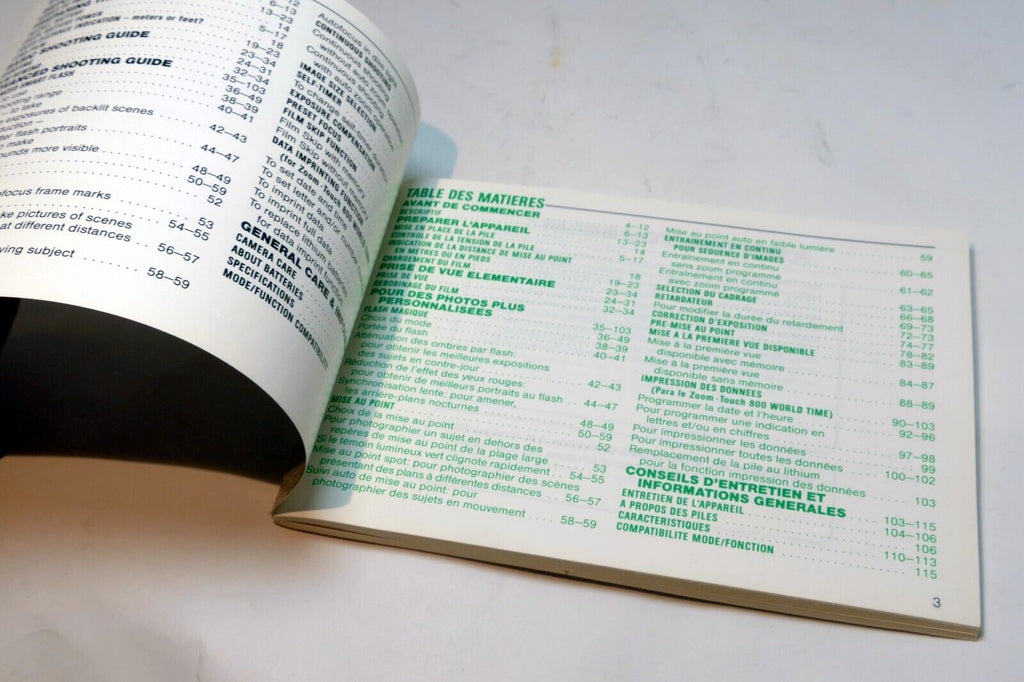 12
6–13
13–23
14
5–17
INDICATION – meters or feet?
18
SHOOTING GUIDE
19–23
23–34
24–31
32–34
ADVANCED SHOOTING GUIDE
SMART FLASH
35–103
36–49
38–39
40–41
exposures of backlit scenes
42–43
flash portraits
44–47
more visible
48–49
50–59
52
focus frame marks
53
pictures of scenes
at different distances
54–55
56–57
subject
58–59
Autofocus in dim
CONTINUOUS SHOOTING
Continuous
without auto
Continuous
with auto
IMAGE SIZE SELECTION
SELF-TIMER
To change self-timer
EXPOSURE COMPENSATION
PRESET FOCUS
FILM SKIP FUNCTION
Film Skip with memory
Film Skip without memory
DATA IMPRINTING
(for Zoom-Touch 800
To set date and
To set letter and/or
To imprint data
To imprint full data
To replace lithium
for data imprint
GENERAL CARE &
CAMERA CARE
ABOUT BATTERIES
SPECIFICATIONS
MODE/FUNCTION COMPATIBILITY
TABLE DES MATIERES
AVANT DE COMMENCER 4–12
DESCRIPTIF 6–13
PREPARER L'APPAREIL 13–23
MISE EN PLACE DE LA PILE 14
CONTROLE DE LA TENSION DE LA PILE 5–17
INDICATION DE LA DISTANCE DE MISE AU POINT
EN METRES OU EN PIEDS 18
CHARGEMENT DU FILM 19–23
PRISE DE VUE ELEMENTAIRE 23–34
PRISE DE VUE 24–31
REBOBINAGE DU FILM 32–34
POUR DES PHOTOS PLUS
PERSONNALISEES 35–103
FLASH MAGIQUE 36–49
Choix du mode 38–39
Portée du flash 40–41
Atténuation des ombres par flash:
pour obtenir les meilleures expositions
des sujets en contre-jour 42–43
Réduction de l'effet des yeux rouges:
pour obtenir de meilleurs portraits au flash 44–47
Synchronisation lente: pour amener,
les arrière-plans nocturnes 48–49
MISE AU POINT 50–59
Choix de la mise au point 52
Pour photographier un sujet en dehors des
repères de mise au point de la plage large 53
Si le témoin lumineux vert clignote rapidement 54–55
Mise au point spot: pour photographier des scènes
présentant des plans à différentes distances 56–57
Suivi auto de mise au point: pour
photographier des sujets en mouvement 58–59
Mise au point auto en faible lumière 59
ENTRAINEMENT EN CONTINU
POUR SEQUENCE D'IMAGES 60–65
Entraînement en continu
sans zoom programmé 61–62
Entraînement en continu
avec zoom programmé 63–65
SELECTION DU CADRAGE 66–68
RETARDATEUR 69–73
Pour modifier la durée du retardement 72–73
CORRECTION D'EXPOSITION 74–77
PRE-MISE AU POINT 78–82
MISE A LA PREMIERE VUE DISPONIBLE 83–89
Mise à la première vue
disponible avec mémoire 84–87
Mise à la première vue
disponible sans mémoire 88–89
IMPRESSION DES DONNEES
(Para le Zoom-Touch 800 WORLD TIME) 90–103
Programmer la date et l'heure 92–96
Pour programmer une indication en
lettres et/ou en chiffres 97–98
Pour impressionner les données 99
Pour impressionner toutes les données 100–102
Remplacement de la pile au lithium
pour la fonction impression des données 103
CONSEILS D'ENTRETIEN ET
INFORMATIONS GENERALES 103–115
ENTRETIEN DE L'APPAREIL 104–106
A PROPOS DES PILES 106
CARACTERISTIQUES 110–113
COMPATIBILITE MODE/FONCTION 115
3